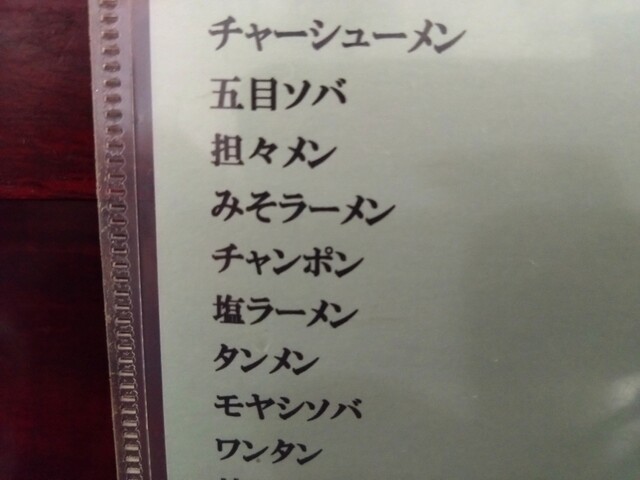 チャーシューメン
五目ソバ
担々メン
みそラーメン
チャンポン
塩ラーメン
タンメン
モヤシソバ
ワンタン